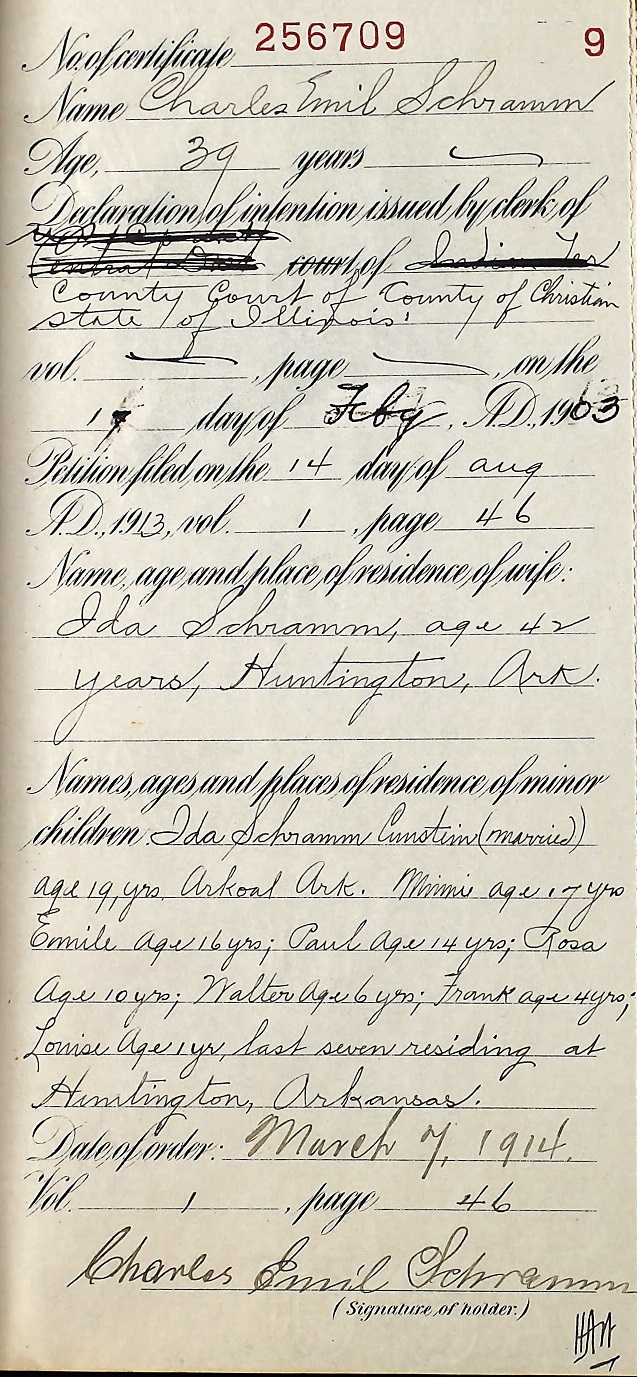 No. of certificate 256709 9
Name Charles Emil Schramm
Age, 39 years
Declaration of intention issued by clerk of
court of Indian Ter
County Court of County of Christian
state of Illinois.
vol. , page , on the
17 day of Feby, A.D., 1903
Petition filed on the 14 day of aug
A.D., 1913, vol. 1, page 46
Name, age and place of residence of wife:
Ida Schramm, age 42
years, Huntington, Ark.
Names, ages and places of residence of minor
children Ida Schramm (married)
age 19, yrs. Arkoal Ark. Minnie age 17 yrs
Emile Age 16 yrs; Paul Age 14 yrs; Rosa
Age 10 yrs; Walter Age 6 yrs; Frank age 4 yrs;
Louise Age 1 yr, last seven residing at
Huntington, Arkansas.
Date of order: March 7, 1914.
Vol. 1, page 46
Charles Emil Schramm
(Signature of holder.)